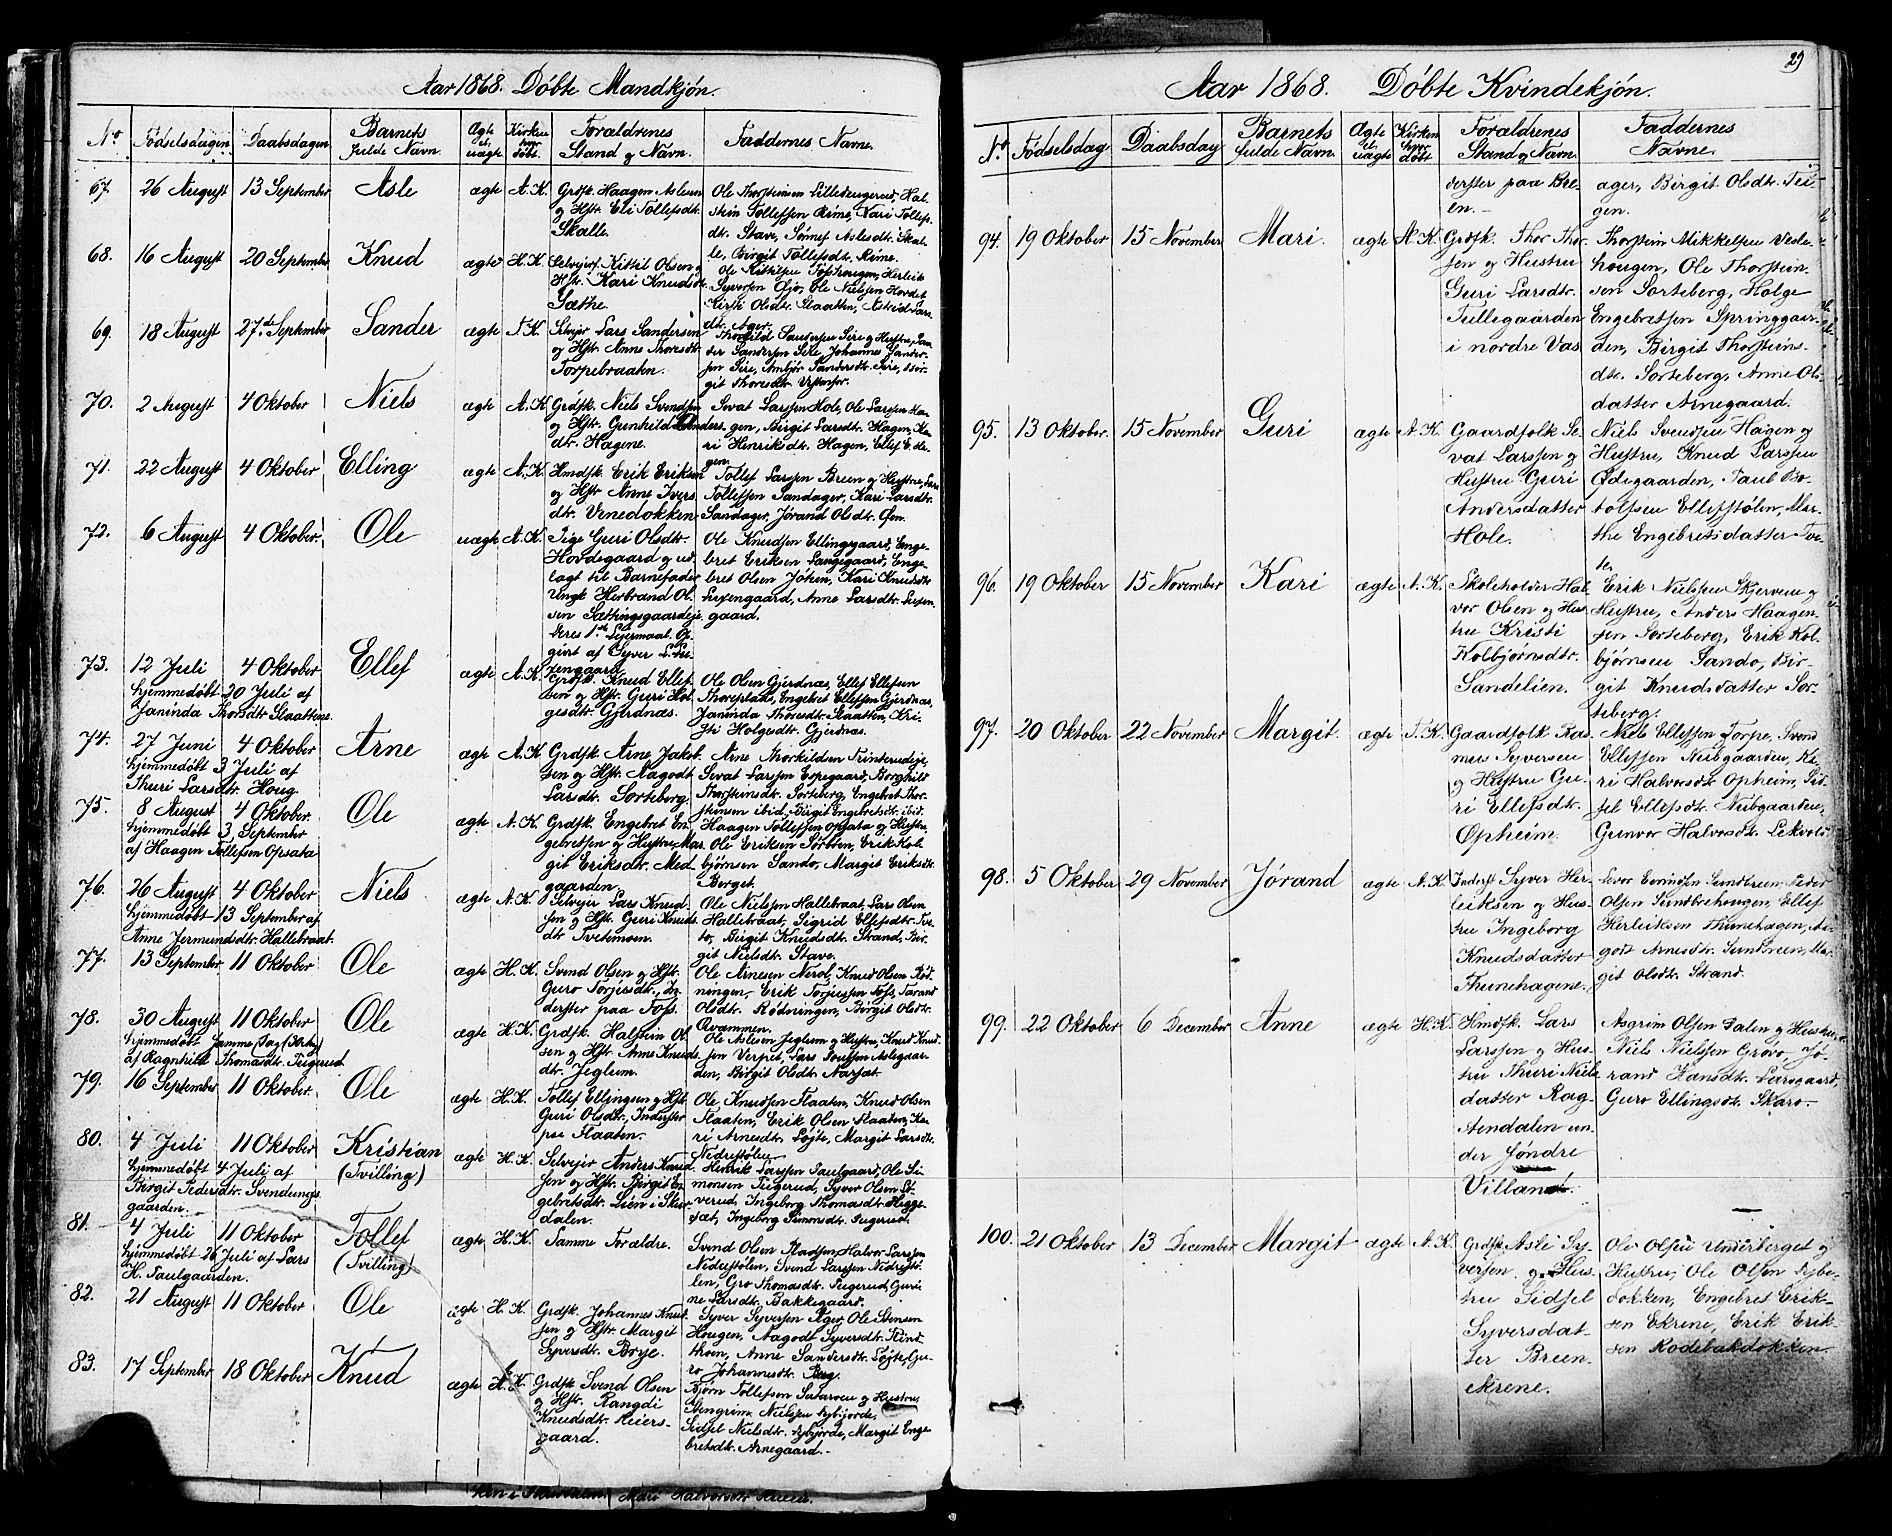 Aar 1868. Døbte Mandkjøn.
No Fødselsdagen Daabsdagen Barnets fulde Navn. Ægte el. uægte Kirken hvor døbt. Forældrenes Stand og Navn. Faddernes Navne.
67. 26 August 13 September Asle ægte A. K. Grdfk. Haagen Aslesen
og Hstr. Eli Tollefsdt.
Skalle.
Ole Thorsteinsen Lilledengerud, Hal-
stein Tollefsen Rime, Kari Tollefs-
dt. Stave, Sønnef Aslesdt. Skal-
le, Birgit Tollefsdt. Rime.
68. 16 August 20 September Knud ægte H. K. Selvejerf. Kittil Olsen og
Hstr. Kari Knudsdt.
Sæthre.
Ole Kittilsen Tofshougen, Herleik
Syversen Gjø, Ole Nielsen Hovdet
Kirsti Olsdt. Slaatten, Astrid Lars-
dt. Ager.
69. 18 August 27de September Sander ægte T. K. Selvejer Lars Sandersen
og Hstr. Anne Thoresdt.
Torpebraaten.
Thorkild Sandersen Sire og Hustru, San-
der Sandersen Sire, Johannes Sander-
sen Sire, Ambjør Sandersdt. Sire, Bir-
git Thoresdt. Vestenfor.
70. 2 August 4 Oktober Niels ægte A. K. Grdfk. Niels Svendsen
og Hstr. Gunhild Anders-
dt. Hagene.
Sevat Larssen Hole, Ole Larssen Ha-
gen, Birgit Larsdt. Hagen, Ka-
ri Henriksdt. Hagen, Ellef E. de-
gen.
71. 22 August 4 Oktober Elling ægte A. K. Hmdfk. Erik Eriksen
og Hstr. Anne Ivers-
dt. Venedokken
Tollef Larssen Breen og Hustru, Lars
Tollefsen Sandager, Kari Larsdt.
Sandager, Jørand Olsdt. Øen.
72. 6 August 4 Oktober. Ole uægte A. K. Pige Guri Olsdt.
Hovdegaard og ud-
lagt til Barnefader
Ungk. Herbrand Ol-
sen Sættingsgaardeje
deres 1ste Lejermaal. Op-
givet af Syver L. Lu-
xengaard.
Ole Knudsen Ellingsgaard, Enge-
bret Eriksen Langegaard, Enge-
bret Olsen Jøten, Kari Knudsdt.
Luxengaard, Anne Larsdt. Luxen-
gaard.
73. 12 Juli 4 Oktober Ellef ægte A. K. Grdfk. Knud Ellef-
sen og Hstr. Guri Hol-
gesdt. Gjerdnæs.
hjemmedøbt 20 Juli af
Janinda Thorsdtr. Slaattens
Ole Olsen Gjerdnæs, Ellef Ellefsen
Thoreplads, Engebret Ellefsen Gjerdnæs,
Janinda Thoresdt. Slaatten, Kri-
sti Holgesdt. Gjerdnæs.
74. 27 Juni 4 Oktober Arne ægte A. K. Grdfk. Arne Jakob-
sen og Hstr. Aagodt
Larsdt. Sorteberg.
hjemmedøbt 3 Juli af
Thuri Larsdtr. Houg.
Arne Thorkildsen Trinterudeje,
Sevat Larssen Espegaard, Borghild
Thorsteinsdt. Sorteberg, Engebret Thor-
stensen ibid., Birgit Engebretsdt. ibid.
75. 8 August 4 Oktober Ole ægte A. K. Grdfk. Engebret En-
gebretsen og Hustru Mar-
git Eriksdt. Med-
gaarden.
hjemmedøbt 3 September
af Haagen Tollefsen Opsata
Haagen Tollefsen Opsata og Hustru,
Ole Eriksen Sørbøn, Erik Kol-
bjørnsen Sando, Margit Eriksdt.
Berget.
76. 26 August 4 Oktober Niels ægte A. K. Selvejer Lars Knud-
sen og Hstr. Guri Knuds-
dt. Tveitemoen.
hjemmedøbt 13 September af
Anne Jermundsdtr. Hallebraat.
Ole Nielsen Hallebraat, Lars Olsen
Hallebraat, Sigrid Ellefsdt. Tve-
to, Birgit Knudsdt. Strand, Bir-
git Nielsdt. Stave.
77. 13 September 11 Oktober Ole ægte H. K. Svend Olsen og Hstr.
Guro Torjusdt., In-
derster paa Tofs.
Ole Arnesen Nerol, Knud Olsen Rød-
ningen, Erik Torjussen Tofs, Tarand
Olsdt. Rødningen, Birgit Olsdt.
Qvammen.
78. 30 August 11 Oktober Ole ægte H. K. Grdfk. Halstein Ol-
sen og Hstr. Anne Knuds-
dt. Jeglum.
hjemmedøbt samme Dag
af Ragnhild Thomasdt. Tuigerud
Ole Aslesen Jeglum og Hustru, Knud Knud-
sen Verpet, Lars Poulsen Aslegaar-
den, Birgit Olsdt. Narsæt.
79. 16 September 11 Oktober Ole ægte H. K. Tollef Ellingsen og Hstr.
Guri Olsdt., Inderster
paa Slaaten.
Ole Knudsen Slaaten, Knud Olsen
Slaaten, Erik Olsen Slaaten, Ka-
ri Arnesdt. Løjte, Margit Larsdt.
Nedrestølen.
80. 4 Juli 11 Oktober Kristian (Tvilling) ægte H. K. Selvejer Anders Knud-
sen og Hstr. Birgit En-
gebretsdt. Lien i Skur-
dalen.
hjemmedøbt 4 Juli af
Birgit Pedersdtr. Svendungs-
gaarden.
Henrik Larssen Paulgaard, Ole Si-
monsen Tuigerud, Syver Olsen
verud, Ingeborg Thomasdt. Hegge-
sæt, Ingeborg Simonsdt. Tuigerud.
81. 4 Juli 11 Oktober Tollef (Tvilling) ægte H. K. Samme Forældre.
hjemmedøbt 26 Juli af Lars
H. Paulgaarden.
Svend Olsen Pladsen, Halvor Larssen
Nedrestølen, Svend Larssen Nedrestø-
len, Gro Thomasdt. Tuigerud, Guri-
ne Larsdt. Bakkegaard.
82. 21 August 11 Oktober Ole ægte H. K. Grdfk. Johannes Knud-
sen og Hstr. Margit
Syversdt. Brye.
Syver Syversen Ager, Ole Stensen
Hougen, Aagodt Syversdt. Rind-
thoen, Anne Sandersdt. Løjte, Gu-
ro Johannesdt. Berg.
83. 17 September 18 Oktober Knud ægte H. K. Grdfk. Svend Olsen
og Hstr. Rangdi
Knudsdt. Reiers-
gaard.
Bjørn Tollefsen Sutarven og Hustru,
Stengrim Nielsen Bybjorde,
Sidsel Nielsdt. Bybjorde, Margit Enge-
bretsdt. Arnegaard.
Mari Halvorsdt
29
Aar 1868. Døbte Kvindekjøn.
No. Fødselsdag Daabsdag Barnets fulde Navn. Ægte el. uægte Kirken hvor døbt Forældrenes Stand og Navn. Faddernes Navne.
derster paa Bre-
en.
ager, Birgit Olsdt. Tei-
gen.
94. 19 Oktober 15 November Mari. ægte A. K. Grdfk. Thor Thor-
sen og Hustru
Guri Larsdt.
Tullegaarden
i nordre Vas
Thorstein Mikkelsen Vesle-
hougen, Ole Thorstein-
sen Sorteberg, Holge
Engebretsen Springgaar-
den, Birgit Thorsteins-
dt. Sorteberg, Anne Ols-
datter Arnegaard.
95. 13 Oktober. 15 November Guri ægte A. K. Gaardfolk Se-
vat Larssen og
Hustru Guri
Andersdatter
Hole.
Niels Svendsen Hagen og
Hustru, Knud Larssen
Ødegaarden, Paul Bo-
tolfsen Ellefstølen, Mar-
the Engebretsdatter Tve-
ten.
96. 19 Oktober 15 November Kari ægte A. K. Skoleholder Hal-
vor Olsen og Hus-
tru Kristi
Kolbjørnsdtr.
Sandelien.
Erik Nielsen Skjerven og
Hustru, Anders Haagen-
sen Sorteberg, Erik Kol-
bjørnsen Sando, Bir-
git Knudsdatter Sor-
teberg.
97. 20 Oktober 22 November Margit. ægte T. K. Gaardfolk Ras-
mus Syversen
og Hustru Gu-
ri Ellefsdt.
Opheim.
Niels Ellefsen Torpe, Svend
Ellefsen Nubgaarden, Ka-
ri Halvorsdt. Opheim, Sid-
sel Ellefsdt. Nubgaarden,
Gunvor Halvorsdt. Lekvold
98. 5 Oktober 29 November Jørand ægte A. K. Inderst Syver Her-
leiksen og Hus-
tru Ingeborg
Knudsdatter
Thunehagene.
Levor Evendsen Sundbreen, Peder
Olsen Sundbrehougen, Ellef
Herleiksen Thunehagen, Aa-
godt Arnesdt. Sundbreen, Mar-
git Olsdt. Strand.
99. 22 Oktober 6 December Anne ægte H. K. Hmdfk. Lars
Larssen og Hus-
tru Thuri Niels-
datter Rag-
Aendalen un-
der Søndre
Villand.
Asgrim Olsen Dalen og Hustru,
Niels Nielsen Grøvo, Jø-
rand Hansdt. Larsgaard,
Guro Ellingsdt. Skaro.
100. 21 Oktober 13 December Margit ægte A. K. Grdfk. Asle Sy-
versen og Hus-
tru Sidsel
Syversdat-
ter Breen-
ekrene.
Ole Olsen Underberget og
Hustru, Ole Olsen Bybe-
dokken, Engebret Erik-
sen Ekrene, Erik Erik-
sen Rodebakdokken.